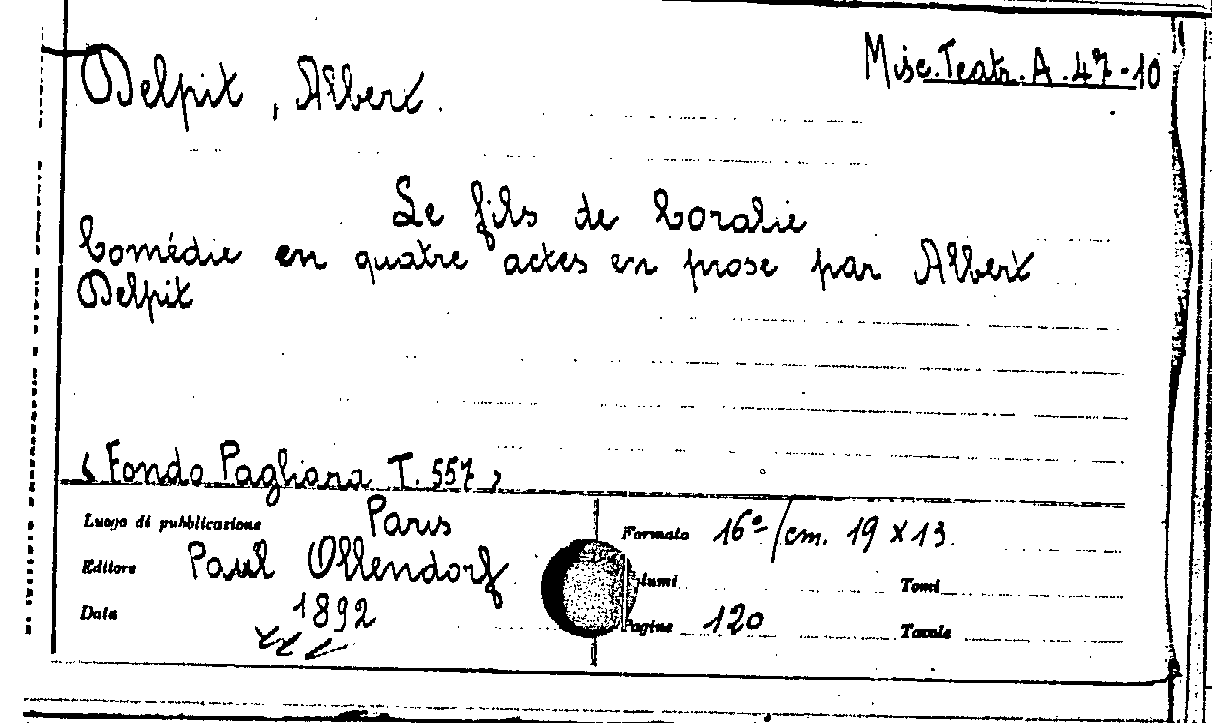 Delpit, Albert.
Misc. Teatr. A. 47-10
Le fils de Coralie
Comédie en quatre actes en prose par Albert
Delpit
(Fondo Pagliara T. 557)
Luogo di pubblicazione Paris
Formato 16º/cm. 19 x 13.
Editore Paul Ollendorf
lumi Tomi
Data 1892
Pagine 120 Tavole